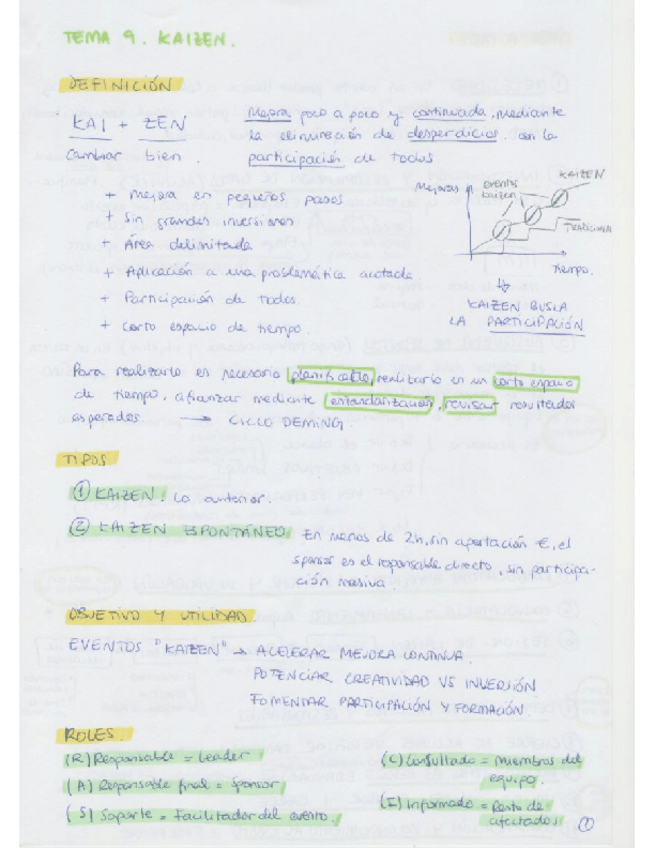 TEMA 9. KAIZEN.
DEFINICIÓN
KAI + ZEN
Cambiar bien.
Mejora poco a poco y continuada, mediante
la eliminación de desperdicios con la
participación de todos
+ Mejora en pequeños pasos
+ Sin grandes inversiones
+ Área delimitada
+ Aplicación a una problemática acotada
+ Participación de todos.
+ Corto espacio de tiempo.
Mejoras
eventos
kaizen
KAIZEN
TRADICIONAL
tiempo.
KAIZEN BUSCA
LA PARTICIPACIÓN
Para realizarlo es necesario planificarlo, realizarlo en un corto espacio
de tiempo, afianzar mediante estandarización, revisar resultados
esperados. → CICLO DEMING.
TIPOS
① KAIZEN: Lo anterior.
② KAIZEN ESPONTÁNEO: En menos de 2h, sin aportación €, el
sponsor es el reponsable directo, sin participa-
ción masiva.
OBJETIVO Y UTILIDAD
EVENTOS "KAIZEN" → ACELERAR MEJORA CONTINUA.
POTENCIAR CREATIVIDAD VS INVERSIÓN
FOMENTAR PARTICIPACIÓN Y FORMACIÓN.
ROLES.
(R) Responsable = Leader
(A) Responsable final = Sponsor
(S) Soporte = Facilitador del evento.
(C) Consultado = Miembros del
equipo.
(I) Informado = Resto de
afectados
①